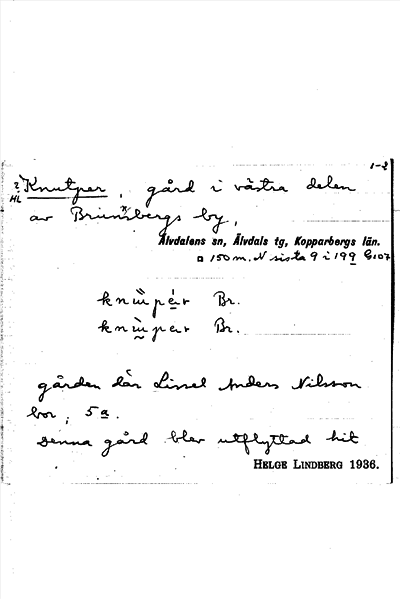 1-2
? Knutper, gård i västra delen
HL
av Brunnsbergs by,
Älvdalens sn, Älvdals tg, Kopparbergs län.
¤ 150 m. N sista 9 i 199 G107
Br.
Br.
gården där Lissel Anders Nilsson
bor, 5a.
Denna gård blev utflyttad hit
HELGE LINDBERG 1936.